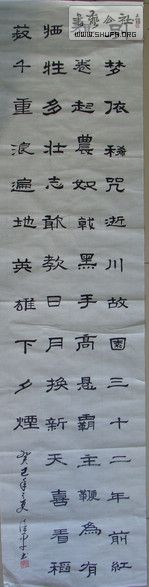 WWW.SHUFA.ORG
梦依稀咒逝川故園三十二年前紅
卷起農奴戟黑手高懸霸主鞭為有
牺牲多壮志敢教日月换新天喜看稻
菽千重浪遍地英雄下夕煙
癸巳年之夏